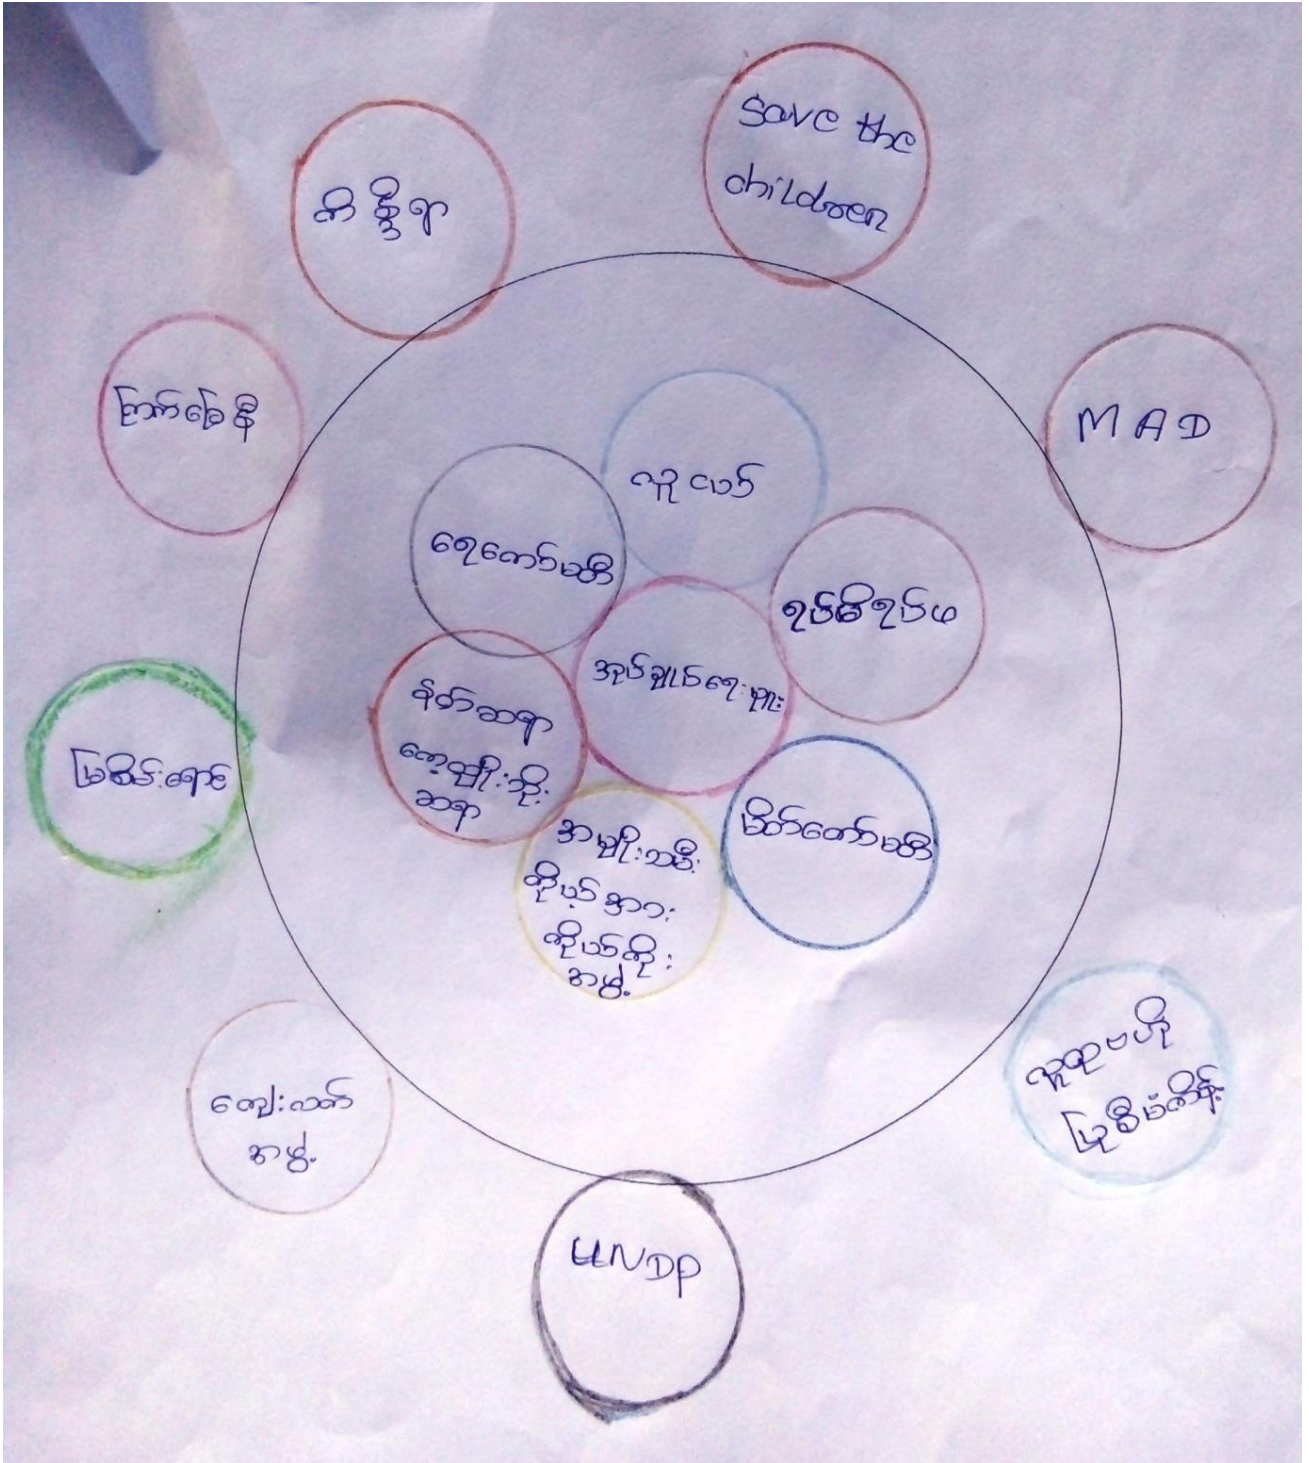 Save the
children
ကိန္နရာ
ကြက်ခြေနီ
M A D
လူငယ်
ရေကော်မတီ
ရပ်မိရပ်ဖ
အုပ်ချုပ်ရေးမှူး
နတ်ဆရာ
တေ့မျိုးဘိုး
ဆရာ
မြစိမ်းရောင်
မိတ်ကော်မတီ
အမျိုးသမီး
ကိုယ့်အား
ကိုယ်ကိုး
အဖွဲ့
ကျေးလက်
အဖွဲ့
လူထုဗဟို
ပြုစီမံကိန်း
UNDP